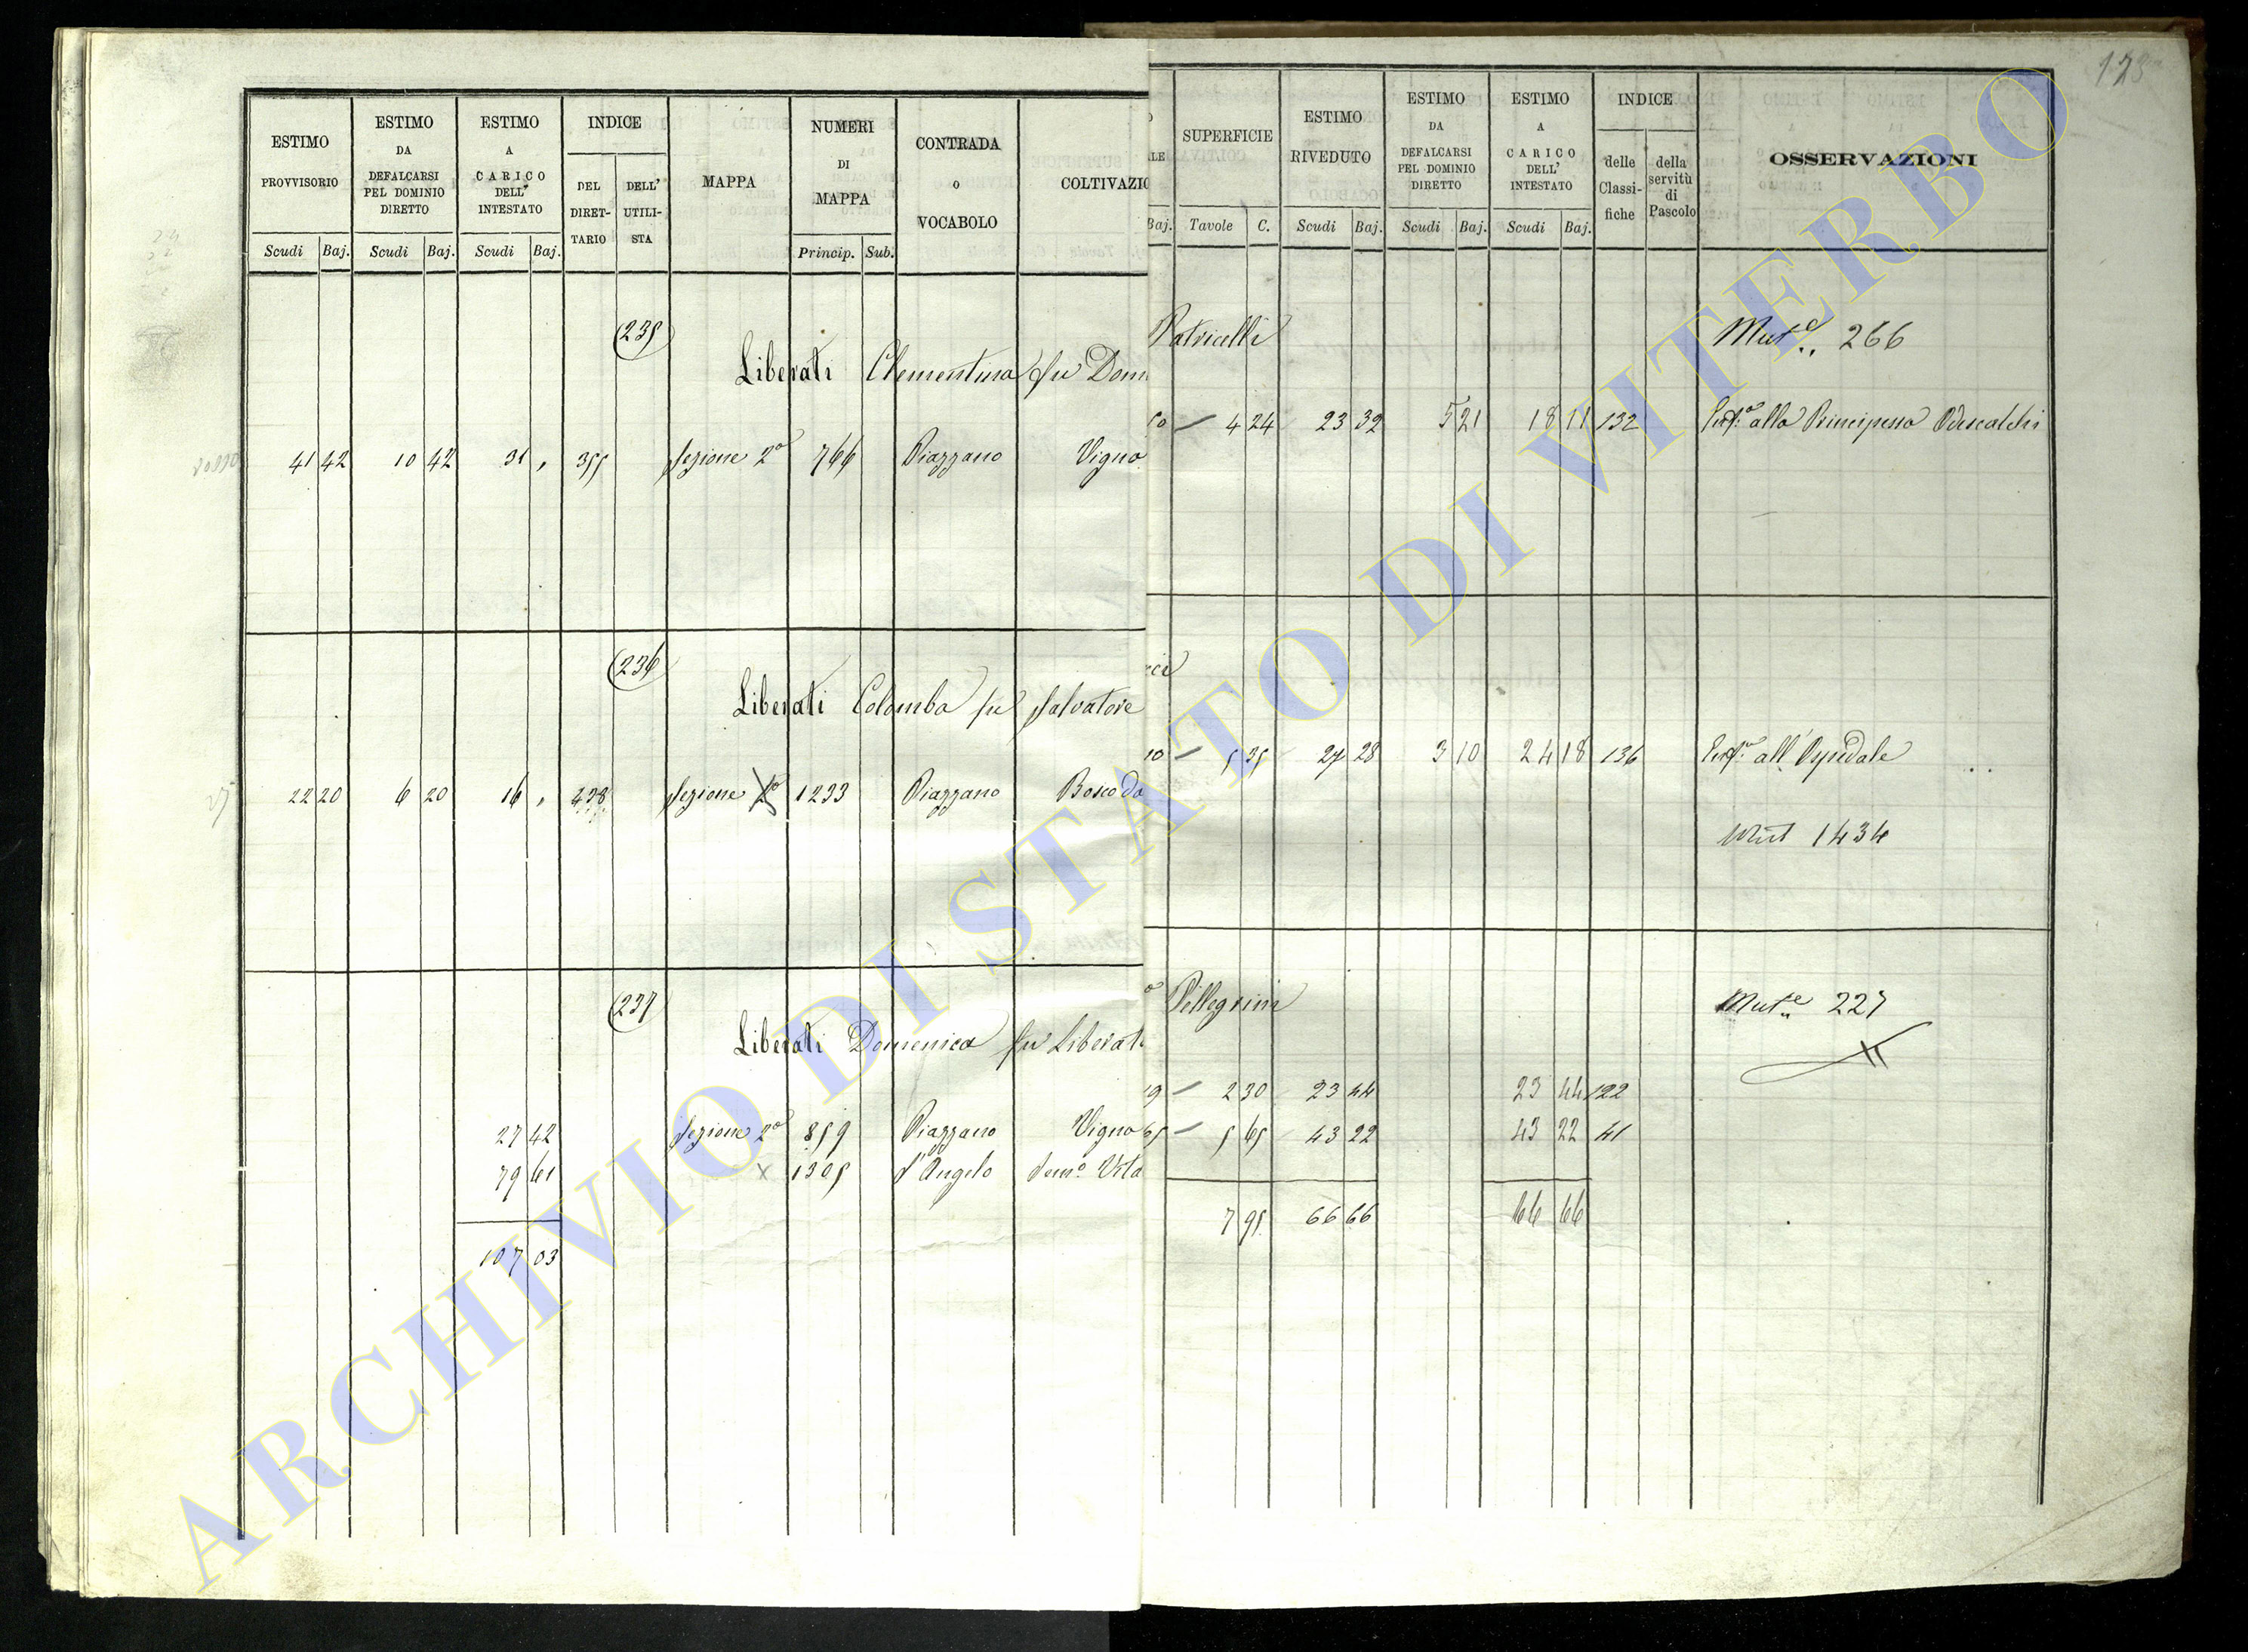 173
ESTIMO PROVVISORIO
Scudi Baj.
ESTIMO DA DEFALCARSI PEL DOMINIO DIRETTO
Scudi Baj.
ESTIMO A CARICO DELL' INTESTATO
Scudi Baj.
INDICE
DEL DIRET-TARIO
DELL' UTILI-STA
MAPPA
NUMERI DI MAPPA
Princip. Sub.
CONTRADA O VOCABOLO
COLTIVAZIO
Baj.
SUPERFICIE
Tavole C.
ESTIMO RIVEDUTO
Scudi Baj.
ESTIMO DA DEFALCARSI PEL DOMINIO DIRETTO
Scudi Baj.
ESTIMO A CARICO DELL' INTESTATO
Scudi Baj.
INDICE
delle Classi-fiche
della servitù di Pascolo
OSSERVAZIONI
235
Liberati Clementina fu Dom
Patricelli
Mut.e 266
41 42 10 42 31 , 355 Sezione 2a 766 Piazzano Vigna
50 4 24 23 32 5 21 18 11 132 alla Principessa Odescalchi
236
Liberati Colomba fu Salvatore
22 20 6 20 16 , 438 Sezione 1233 Piazzano Bosco da
10 5 35 27 28 3 10 24 18 136 all'Ospedale
Mut 1434
237
Liberati Domenica fu Liberat
Pellegrini
Mut.e 227
27 42 Sezione 2a 859 Piazzano Vigna
9 2 30 23 44 23 44 122
79 61 x 1305 S'Angelo Sem.o Vita
65 5 65 43 22 43 22 41
107 03
7 95 66 66 66 66
ARCHIVIO DI STATO DI VITERBO